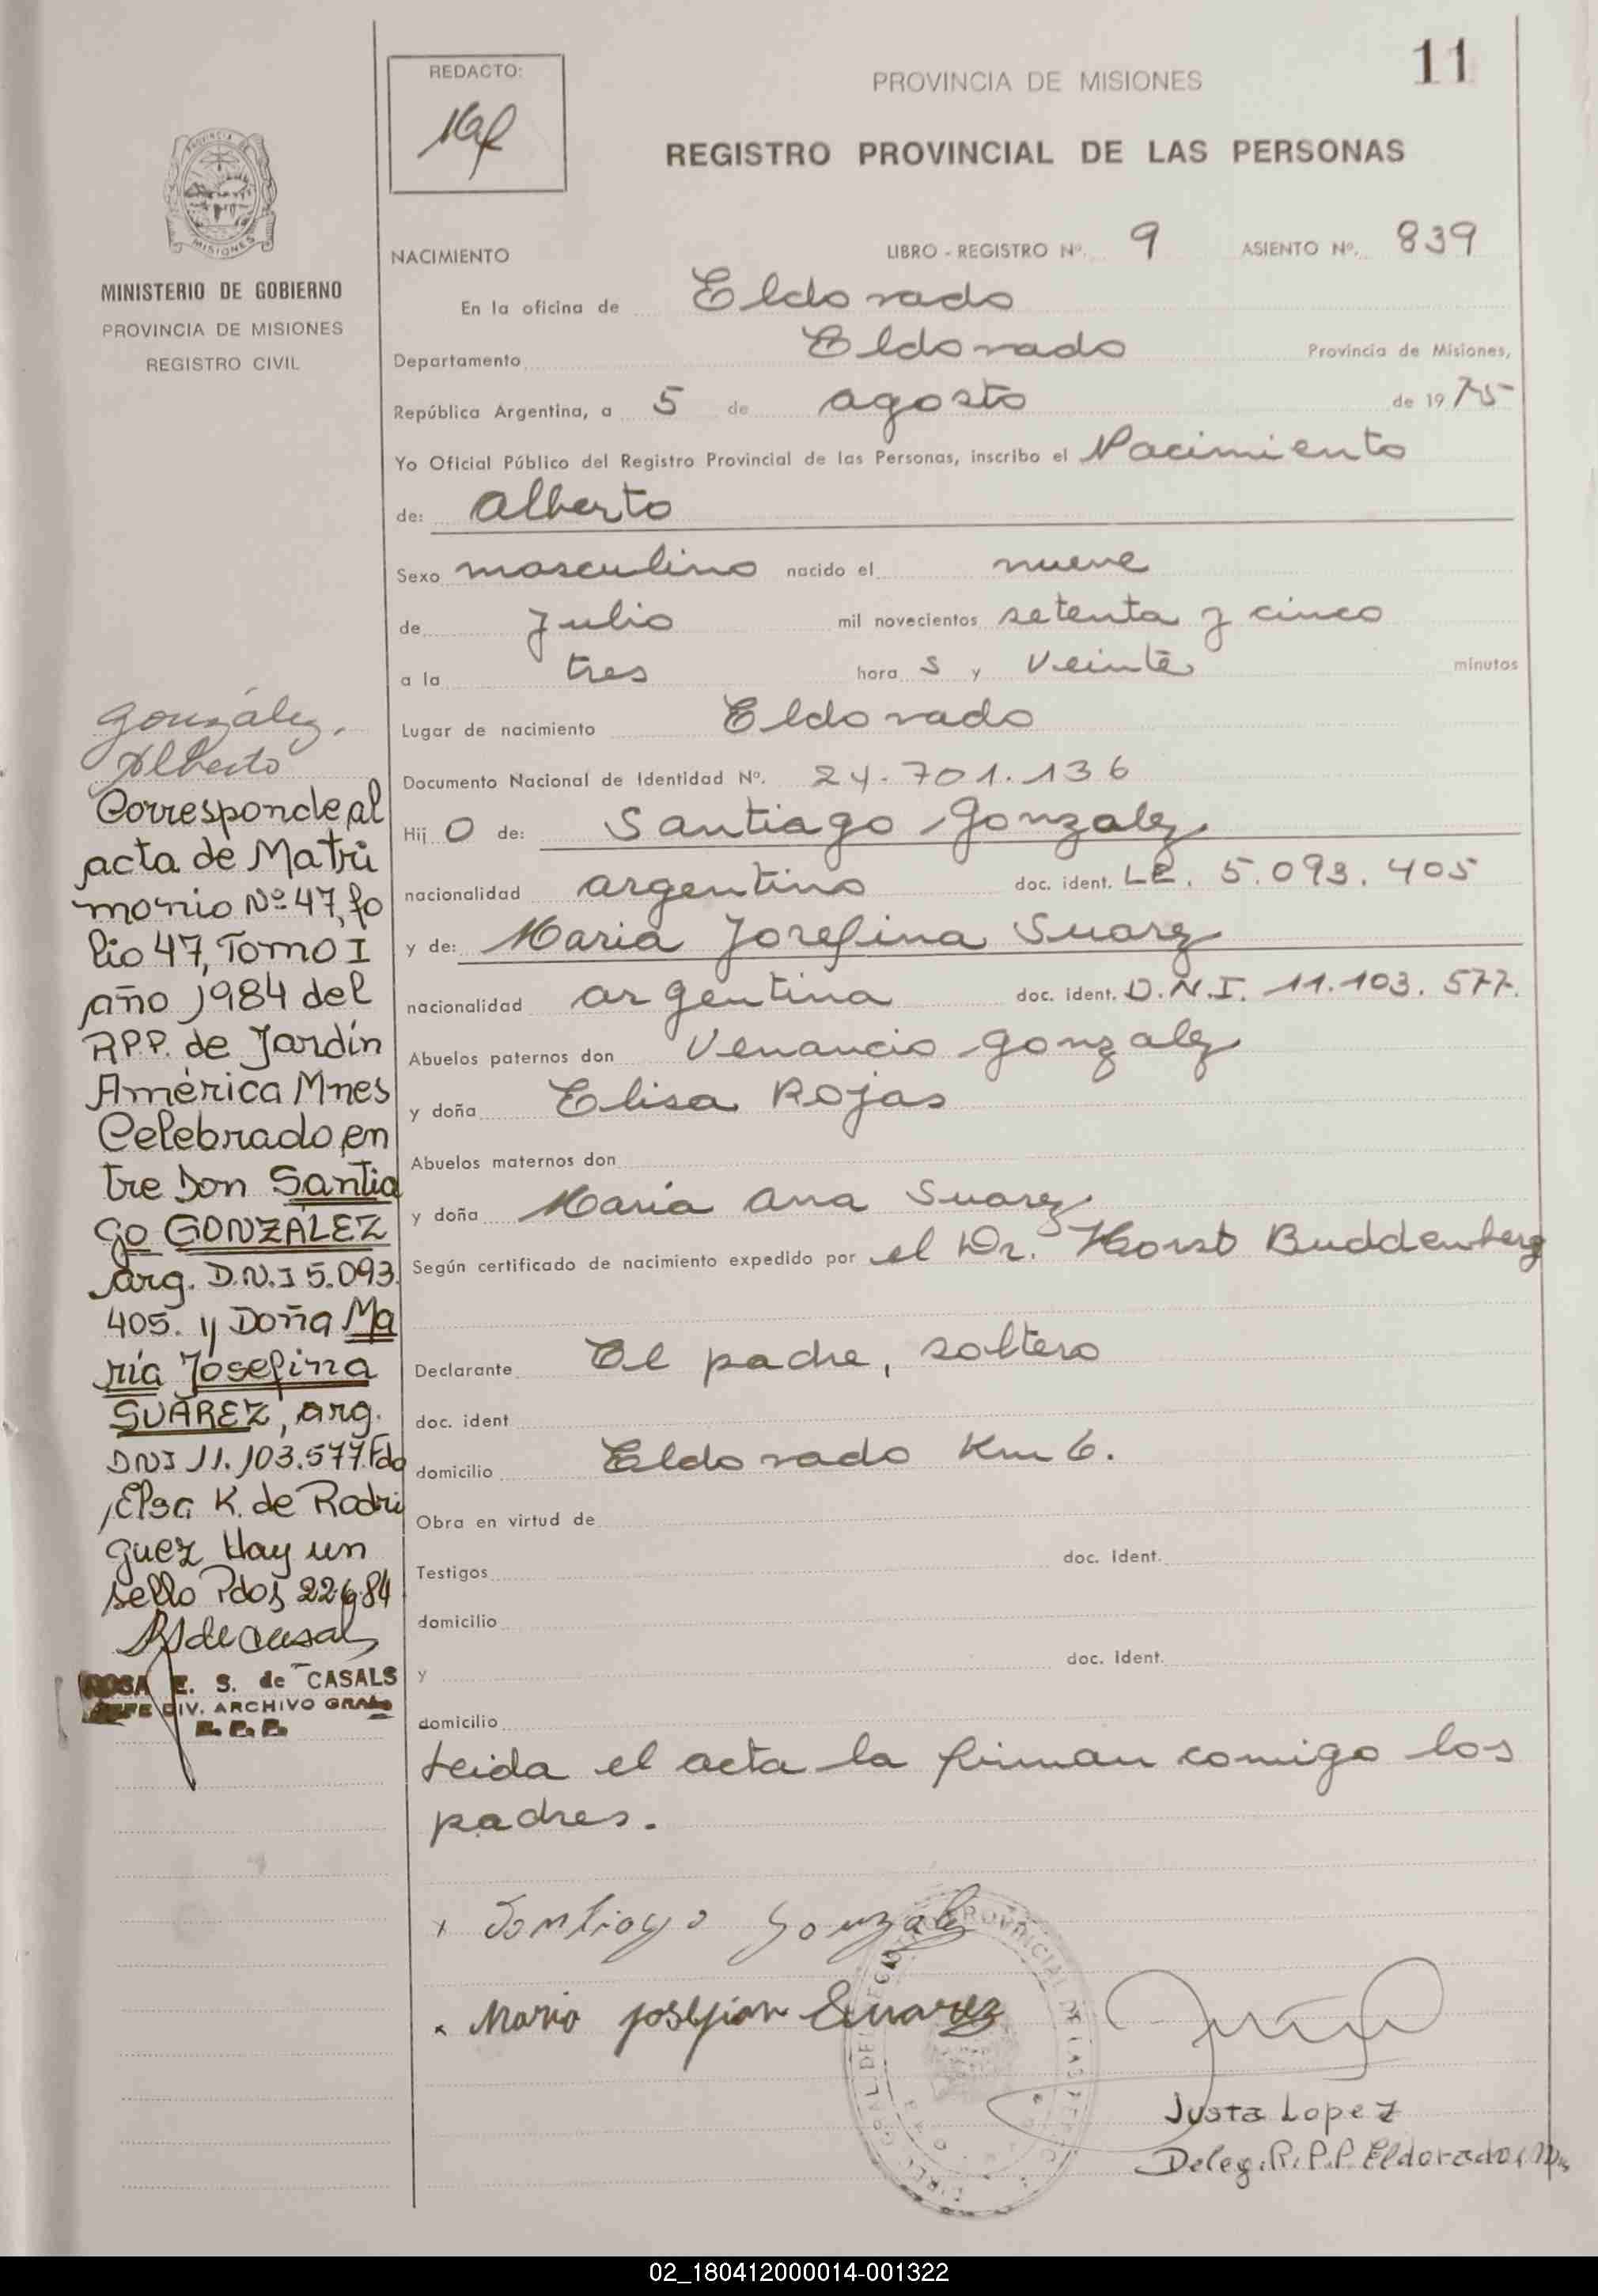 11
REDACTO:
PROVINCIA DE MISIONES
REGISTRO PROVINCIAL DE LAS PERSONAS
PROVINCIA DE
MISIONES
MINISTERIO DE GOBIERNO
PROVINCIA DE MISIONES
REGISTRO CIVIL
NACIMIENTO LIBRO - REGISTRO Nº. 9 ASIENTO Nº. 839
En la oficina de Eldorado
Departamento Eldorado Provincia de Misiones,
República Argentina, a 5 de agosto de 1975
Yo Oficial Público del Registro Provincial de las Personas, inscribo el Nacimiento
de: Alberto
Sexo masculino nacido el nueve
de Julio mil novecientos setenta y cinco
a la tres hora s y veinte minutos
Lugar de nacimiento Eldorado
Documento Nacional de Identidad Nº. 24.701.136
Hij o de: Santiago Gonzalez
nacionalidad argentino doc. ident. LE. 5.093.405
y de: Maria Josefina Suarez
nacionalidad argentina doc. ident. D.N.I. 11.103.577.
Abuelos paternos don Venancio Gonzalez
y doña Elisa Rojas
Abuelos maternos don
y doña Maria Ana Suarez
Según certificado de nacimiento expedido por el Dr. Horst Buddenberg
Declarante El padre, soltero
doc. ident
domicilio Eldorado Km 6.
Obra en virtud de
Testigos doc. ident.
domicilio
y doc. ident.
domicilio
Leida el acta la firman comigo los
padres.
x Santiago Gonzalez
x Maria Suarez
Justa Lopez
Deleg. R.P.P. Eldorado, Ms
González,
Alberto
Corresponde al
acta de Matri
monio Nº 47, fo
lio 47, Tomo I
año 1984 del
R.P.P. de Jardín
América Mnes
Celebrado en
tre Don Santia
go GONZÁLEZ
arg. D.N.I 5.093.
405. y Doña Ma
ría Josefina
SUÁREZ, arg.
DNI 11.103.577. Fdo
Elsa K. de Rodri
guez Hay un
sello Pdos 22.6.84
ROSA E. S. de CASALS
JEFE DIV. ARCHIVO GRAL
R. P. P.
02_180412000014-001322